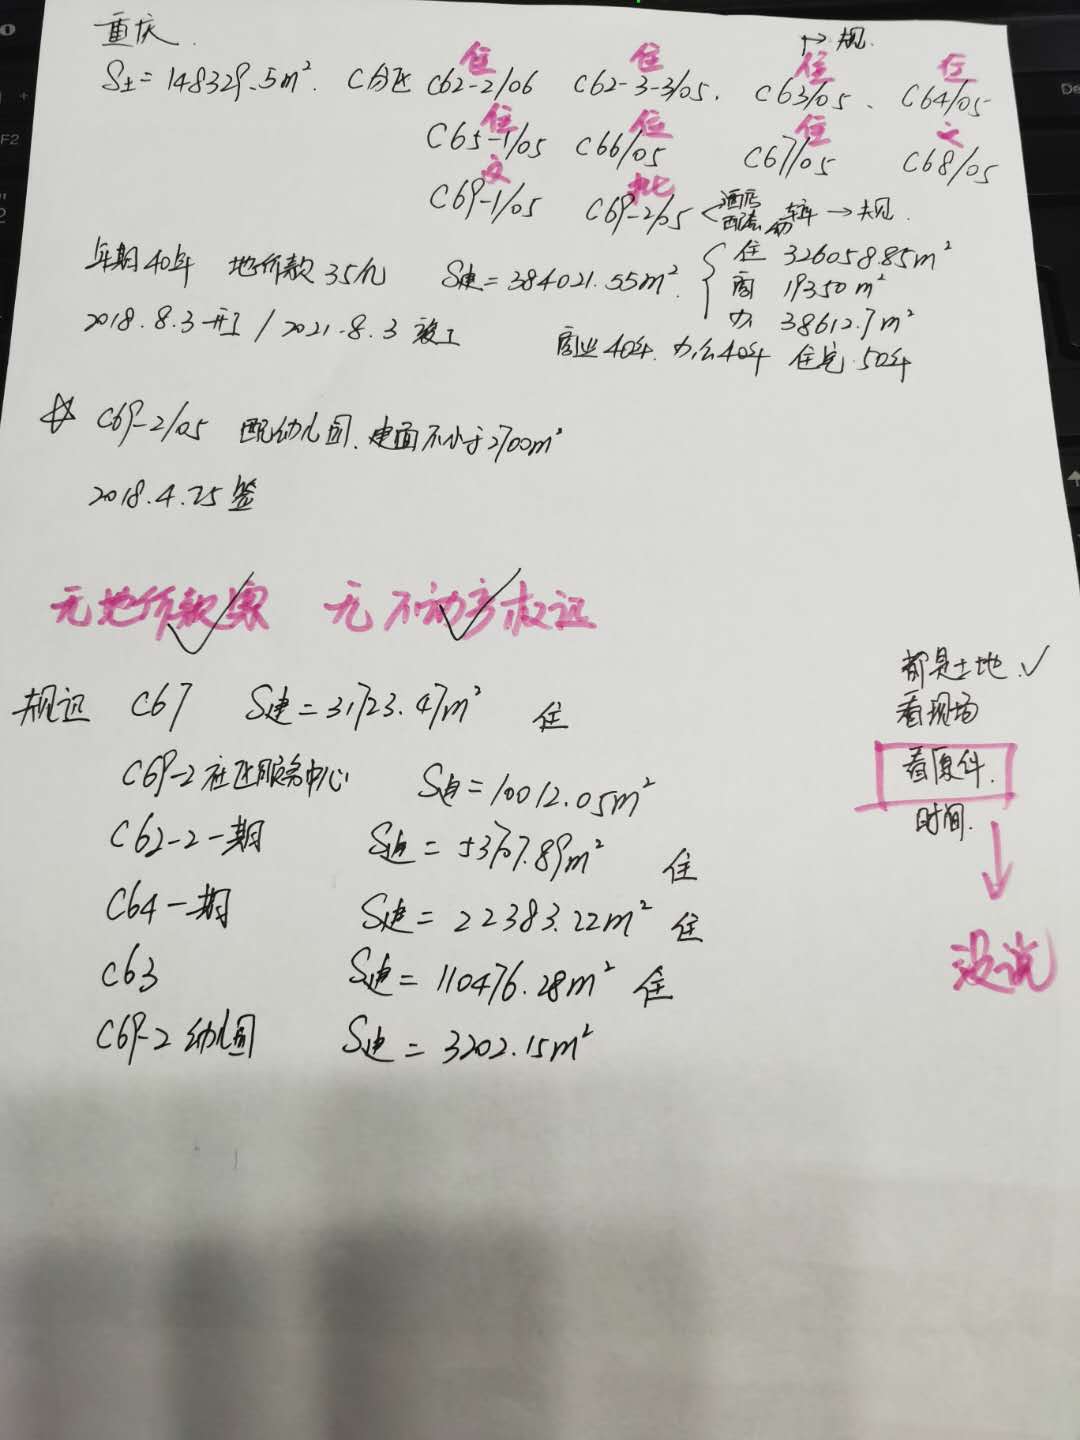 重庆.
→ 规.
住 住 住 住
S土= 148329.5m². C分区 C62-2/06 C62-3-3/05. C63/05、C64/05
住 住 住 文
C65-1/05 C66/05 C67/05 C68/05
文 批
C69-1/05 C69-2/05 < 酒店 车库 → 规.
配套 幼
年期40年 地价款35亿 S建=384021.55m². { 住 326058.85m²
商 19350m²
办 38612.7m²
2018.8.3开工 / 2021.8.3竣工 商业40年. 办公40年 住宅.50年
☆ C69-2/05 配幼儿园.建面不小于2700m²
2018.4.25签
无地价款票 无不动产权证
都是土地.✓
看现场
看原件.
时间.
没说
规证 C67 S建=31723.47m² 住
C69-2社区服务中心 S建=10012.05m²
C62-2一期 S建=53707.89m² 住
C64一期 S建=22383.22m² 住
C63 S建=110476.28m² 住
C69-2幼儿园 S建=3202.15m²